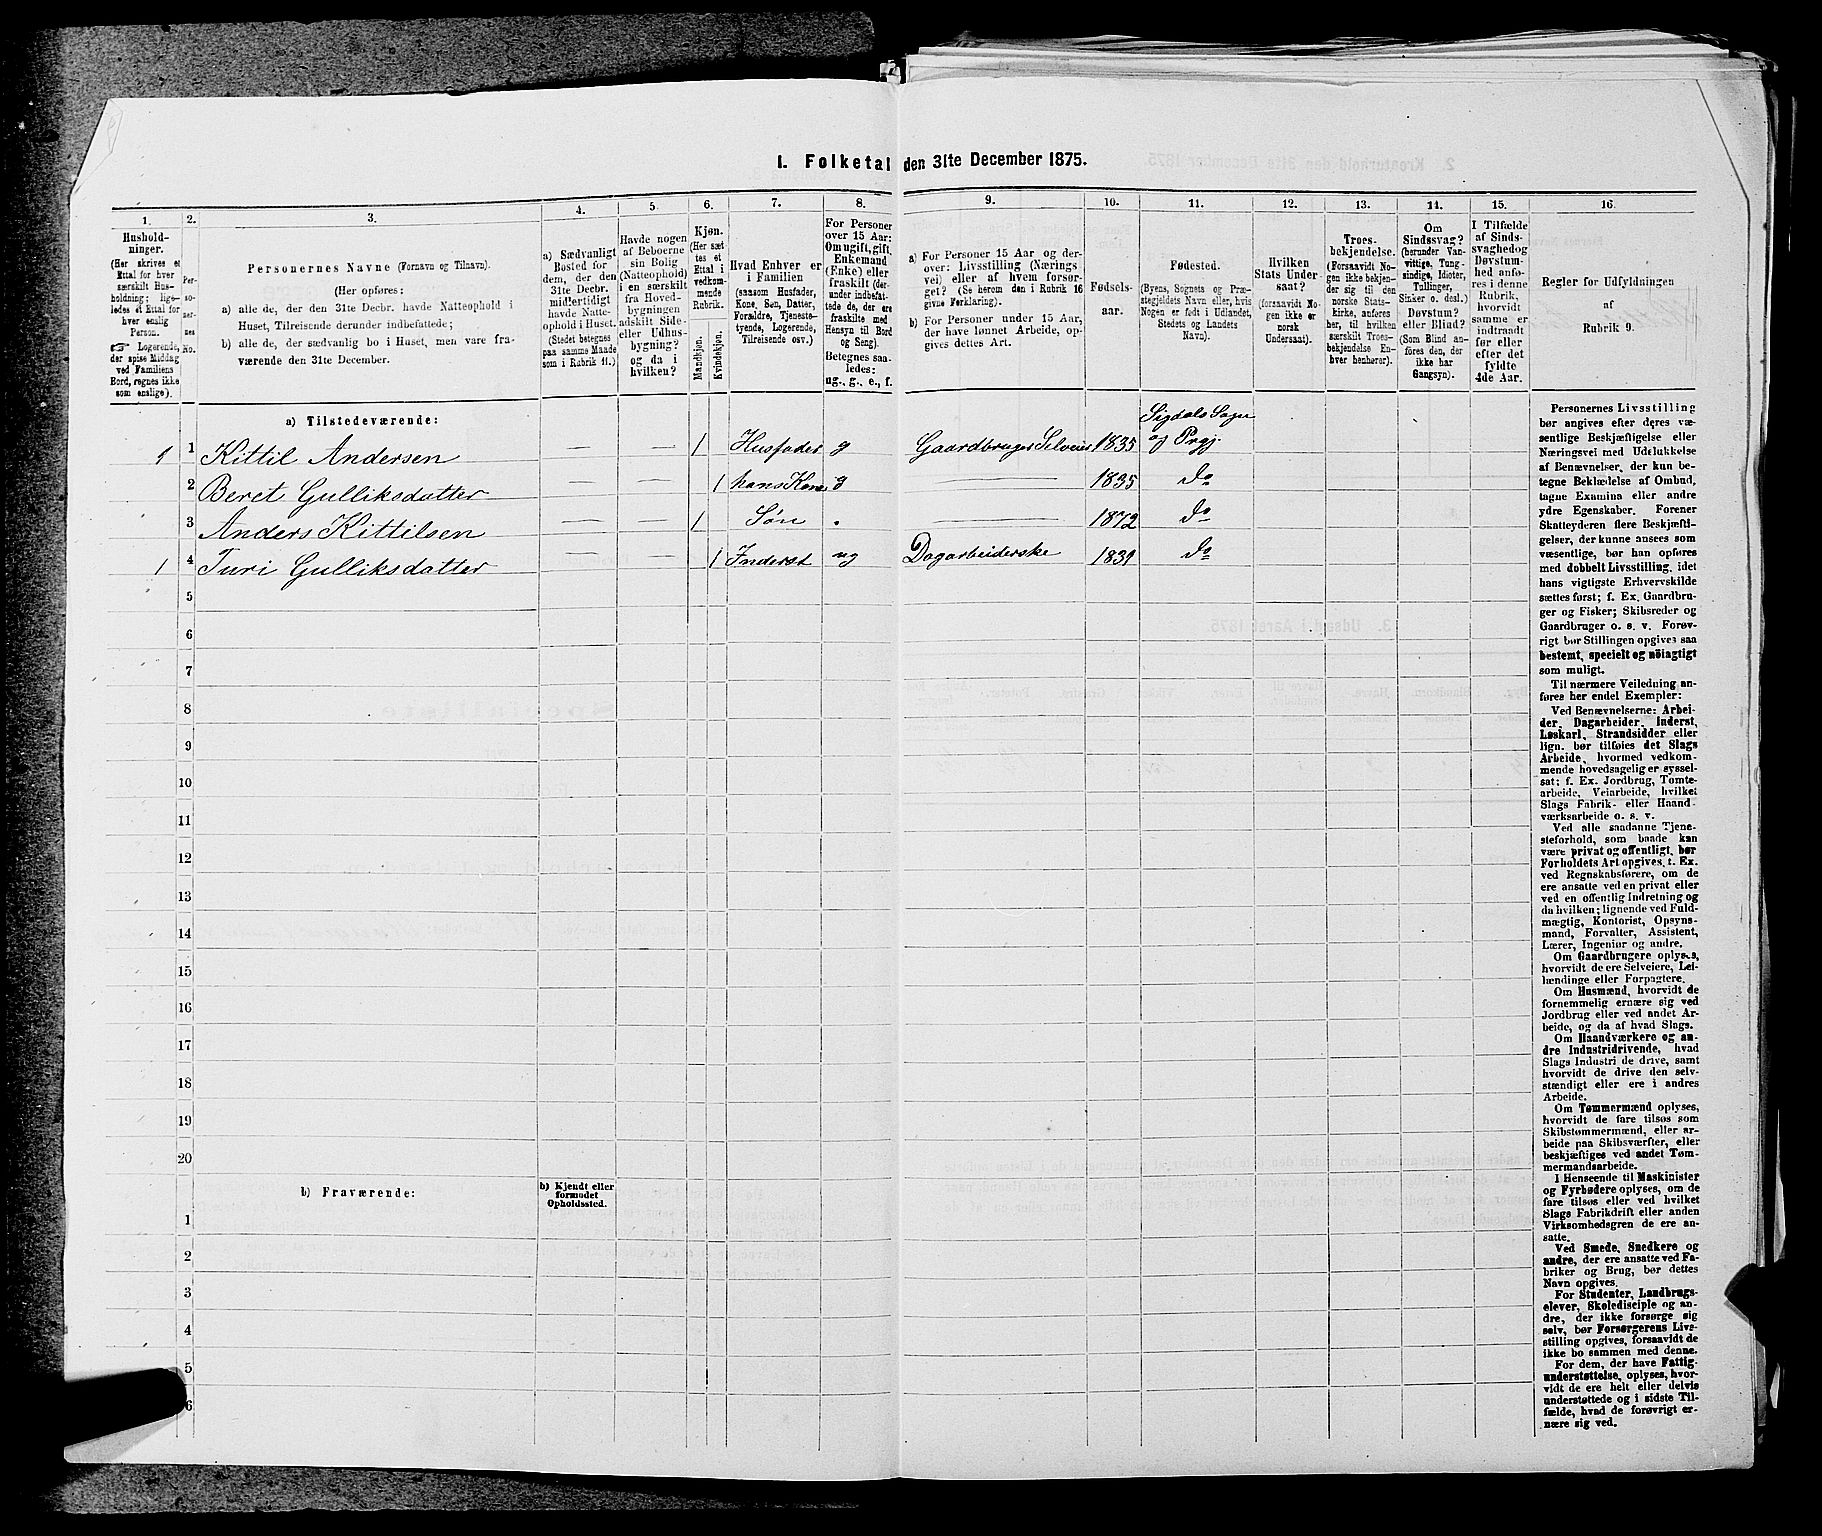 1. Folketal den 31te December 1875.
1.
2.
3.
4.
5.
6.
7.
8.
9.
10.
11.
12.
13.
14.
15.
16.
Hushold-
ninger.
(Her skrives et
Ettal for hver
særskilt Hus-
holdning; lige-
ledes et Ettal for
hver enslig
Person.
☞ Logerende,
der spise Middag
ved Familiens
Bord, regnes ikke
som enslige).
Per-
so-
ner-
nes
No.
Personernes Navne (Fornavn og Tilnavn).
(Her opføres:
a) alle de, der den 31te Decbr. havde Natteophold i
Huset, Tilreisende derunder indbefattede;
b) alle de, der sædvanlig bo i Huset, men vare fra-
værende den 31te December.
a) Sædvanligt
Bosted for
dem, der den
31te Decbr.
midlertidigt
havde Natte-
ophold i Huset.
(Stedet betegnes
paa samme Maade
som i Rubrik 11.)
Havde nogen
af Beboerne
sin Bolig
(Natteophold)
i en særskilt
fra Hoved-
bygningen
adskilt Side-
eller Udhus-
bygning?
og da i
hvilken?
Kjøn.
(Her sæt-
tes et
Ettal i
vedkom-
mende
Rubrik.
Mandkjøn.
Kvindekjøn.
Hvad Enhver er
i Familien
(saasom Husfader,
Kone, Søn, Datter,
Forældre, Tjeneste-
tyende, Logerende,
Tilreisende osv.)
For Personer
over 15 Aar:
Om ugift, gift,
Enkemand
(Enke) eller
fraskilt (der-
under indbefat-
tede de, der ere
fraskilte med
Hensyn til Bord
og Seng).
Betegnes saa-
ledes:
ug., g., e., f.
a) For Personer 15 Aar og der-
over: Livsstilling (Nærings-
vei) eller af hvem forsør-
get? (Se herom den i Rubrik 16
givne Forklaring).
b) For Personer under 15 Aar,
der have lønnet Arbeide, op-
gives dettes Art.
Fødsels-
aar.
Fødested.
(Byens, Sognets og Præ-
stegjeldets Navn eller, hvis
Nogen er født i Udlandet,
Stedets og Landets
Navn).
Hvilken
Stats Under-
saat?
(forsaavidt No-
gen ikke er
norsk
Undersaat).
Troes-
bekjendelse.
(Forsaavidt No-
gen ikke bekjen-
der sig til den
norske Stats-
kirke, anføres
her, til hvilken
særskilt Troes-
bekjendelse En-
hver henhører).
Om
Sindssvag?
(herunder Van-
vittige, Tung-
sindige, Idioter,
Tullinger,
Sinker o. desl.)
Døvstum?
eller Blind?
(Som Blind an-
føres den, der
ikke har
Gangsyn).
I Tilfælde
af Sinds-
svaghed og
Døvstum-
hed anfø-
res i denne
Rubrik,
hvorvidt
samme er
indtraadt
før eller
efter det
fyldte
4de Aar.
Regler for Udfyldningen
af
Rubrik 9.
a) Tilstedeværende:
Sigdals Sogn
1 1 Kittil Andersen — — 1 Husfader g Gaardbruger Selveier 1835 og Prgj.
2 Beret Gulliksdatter — — 1 hans Kone g — 1835 do
3 Anders Kittilsen — — 1 Søn . — 1872 do
1 4 Turi Gulliksdatter — — 1 Inderst ug Dagarbeiderske 1831 do
5
6
7
8
9
10
11
12
13
14
15
16
17
18
19
20
b) Fraværende:
b) Kjendt eller
formodet
Opholdssted.
1
2
3
4
5
6
Personernes Livsstilling
bør angives efter deres væ-
sentlige Beskjæftigelse eller
Næringsvei med Udelukkelse
af Benævnelser, der kun be-
tegne Beklædelse af Ombud,
tagne Examina eller andre
ydre Egenskaber. Forener
Skatteyderen flere Beskjæfti-
gelser, der kunne ansees som
væsentlige, bør han opføres
med dobbelt Livsstilling, idet
hans vigtigste Erhvervskilde
sættes først; f. Ex. Gaardbru-
ger og Fisker; Skibsreder og
Gaardbruger o. s. v. Forøv-
rigt bør Stillingen opgives saa
bestemt, specielt og nöiagtigt
som muligt.
Til nærmere Veiledning an-
føres her endel Exempler:
Ved Benævnelserne: Arbei-
der, Dagarbeider, Inderst,
Løskarl, Strandsidder eller
lign. bør tilføies det Slags
Arbeide, hvormed vedkom-
mende hovedsagelig er syssel-
sat; f. Ex. Jordbrug, Tømte-
arbeide, Veiarbeide, hvilket
Slags Fabrik- eller Haand-
værksarbeide o. s. v.
Ved alle saadanne Tjene-
steforhold, som baade kan
være privat og offentligt, bør
Forholdets Art opgives, t. Ex.
ved Regnskabsførere, om de
ere ansatte ved en privat eller
ved en offentlig Indretning og
da hvilken; lignende ved Fuld-
mægtig, Kontorist, Opsyns-
mand, Forvalter, Assistent,
Lærer, Ingeniør og andre.
Om Gaardbrugere oplyses,
hvorvidt de ere Selveiere, Lei-
lændinge eller Forpagtere.
Om Husmænd, hvorvidt de
fornemmelig ernære sig ved
Jordbrug eller ved andet Ar-
beide, og da af hvad Slags.
Om Haandværkere og an-
dre Industridrivende, hvad
Slags Industri de drive, samt
hvorvidt de drive den selv-
stændigt eller ere i andres
Arbeide.
Om Tømmermænd oplyses,
hvorvidt de fare tilsøs som
Skibstømmermænd, eller ar-
beide paa Skibsværfter, eller
beskjæftiges ved andet Tøm-
mermandsarbeide.
I Henseende til Maskinister
og Fyrbødere oplyses, om de
fare tilsøs eller ved hvilket
Slags Fabrikdrift eller anden
Virksomhedsgren de ere an-
satte.
Ved Smede, Snedkere og
andre, der ere ansatte ved Fa-
briker og Brug, bør dettes
Navn opgives.
For Studenter, Landbrugs-
elever, Skoledisciple og an-
dre, der ikke forsørge sig
selv, bør Forsørgerens Livs-
stilling opgives, forsaavidt de
ikke bo sammen med denne.
For dem, der have Fattig-
understøttelse, oplyses, hvor-
vidt de ere helt eller delvis
understøttede og i sidste Til-
fælde, hvad de forøvrigt er-
nære sig ved.